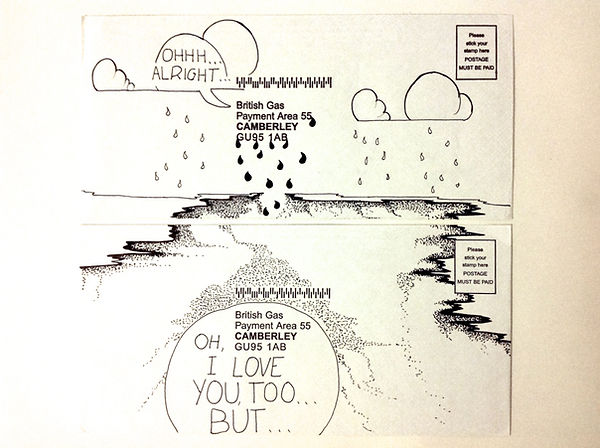 OHHH...
ALRIGHT...
Please
stick your
stamp here
POSTAGE
MUST BE PAID
British Gas
Payment Area 55
CAMBERLEY
GU95 1AB
Please
stick your
stamp here
POSTAGE
MUST BE PAID
British Gas
Payment Area 55
CAMBERLEY
GU95 1AB
OH,
I LOVE
YOU, TOO...
BUT...